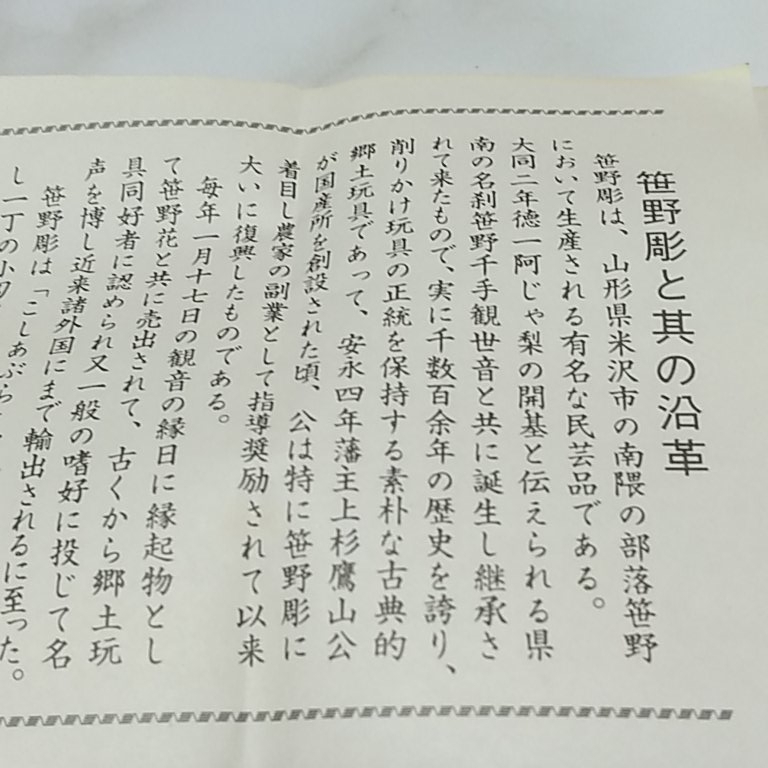 笹野彫と其の沿革
笹野彫は、山形県米沢市の南隈の部落笹野
において生産される有名な民芸品である。
大同二年徳一阿じゃ梨の開基と伝えられる県
南の名刹笹野千手観世音と共に誕生し継承さ
れて来たもので、実に千数百余年の歴史を誇り、
削りかけ玩具の正統を保持する素朴な古典的
郷土玩具であって、安永四年藩主上杉鷹山公
が国産所を創設された頃、公は特に笹野彫に
着目し農家の副業として指導奨励されて以来
大いに復興したものである。
毎年一月十七日の観音の縁日に縁起物とし
て笹野花と共に売出されて、古くから郷土玩
具同好者に認められ又一般の嗜好に投じて名
声を博し近来諸外国にまで輸出されるに至った。
笹野彫は「こしあぶら
し一丁の小刀